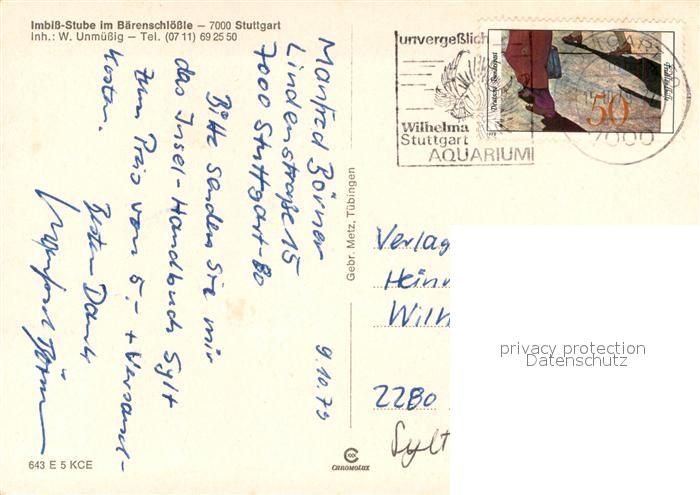 Imbiß-Stube im Bärenschlößle — 7000 Stuttgart
Inh.: W. Unmüßig — Tel. (07 11) 69 25 50
Manfred Börner
Lindenstraße 15
7000 Stuttgart-80
9.10.79
Bitte senden Sie mir
das Insel-Handbuch Sylt
zum Preis von 5.- + Versand-
kosten.
Besten Dank
Manfred Börner
643 E 5 KCE
Gebr. Metz, Tübingen
CHROMOLUX
unvergeßlich
Wilhelma
Stuttgart
AQUARIUM
Deutsche Bundespost
50
7000
Verlag
Hein
Wilh
2280
Sylt
privacy protection
Datenschutz